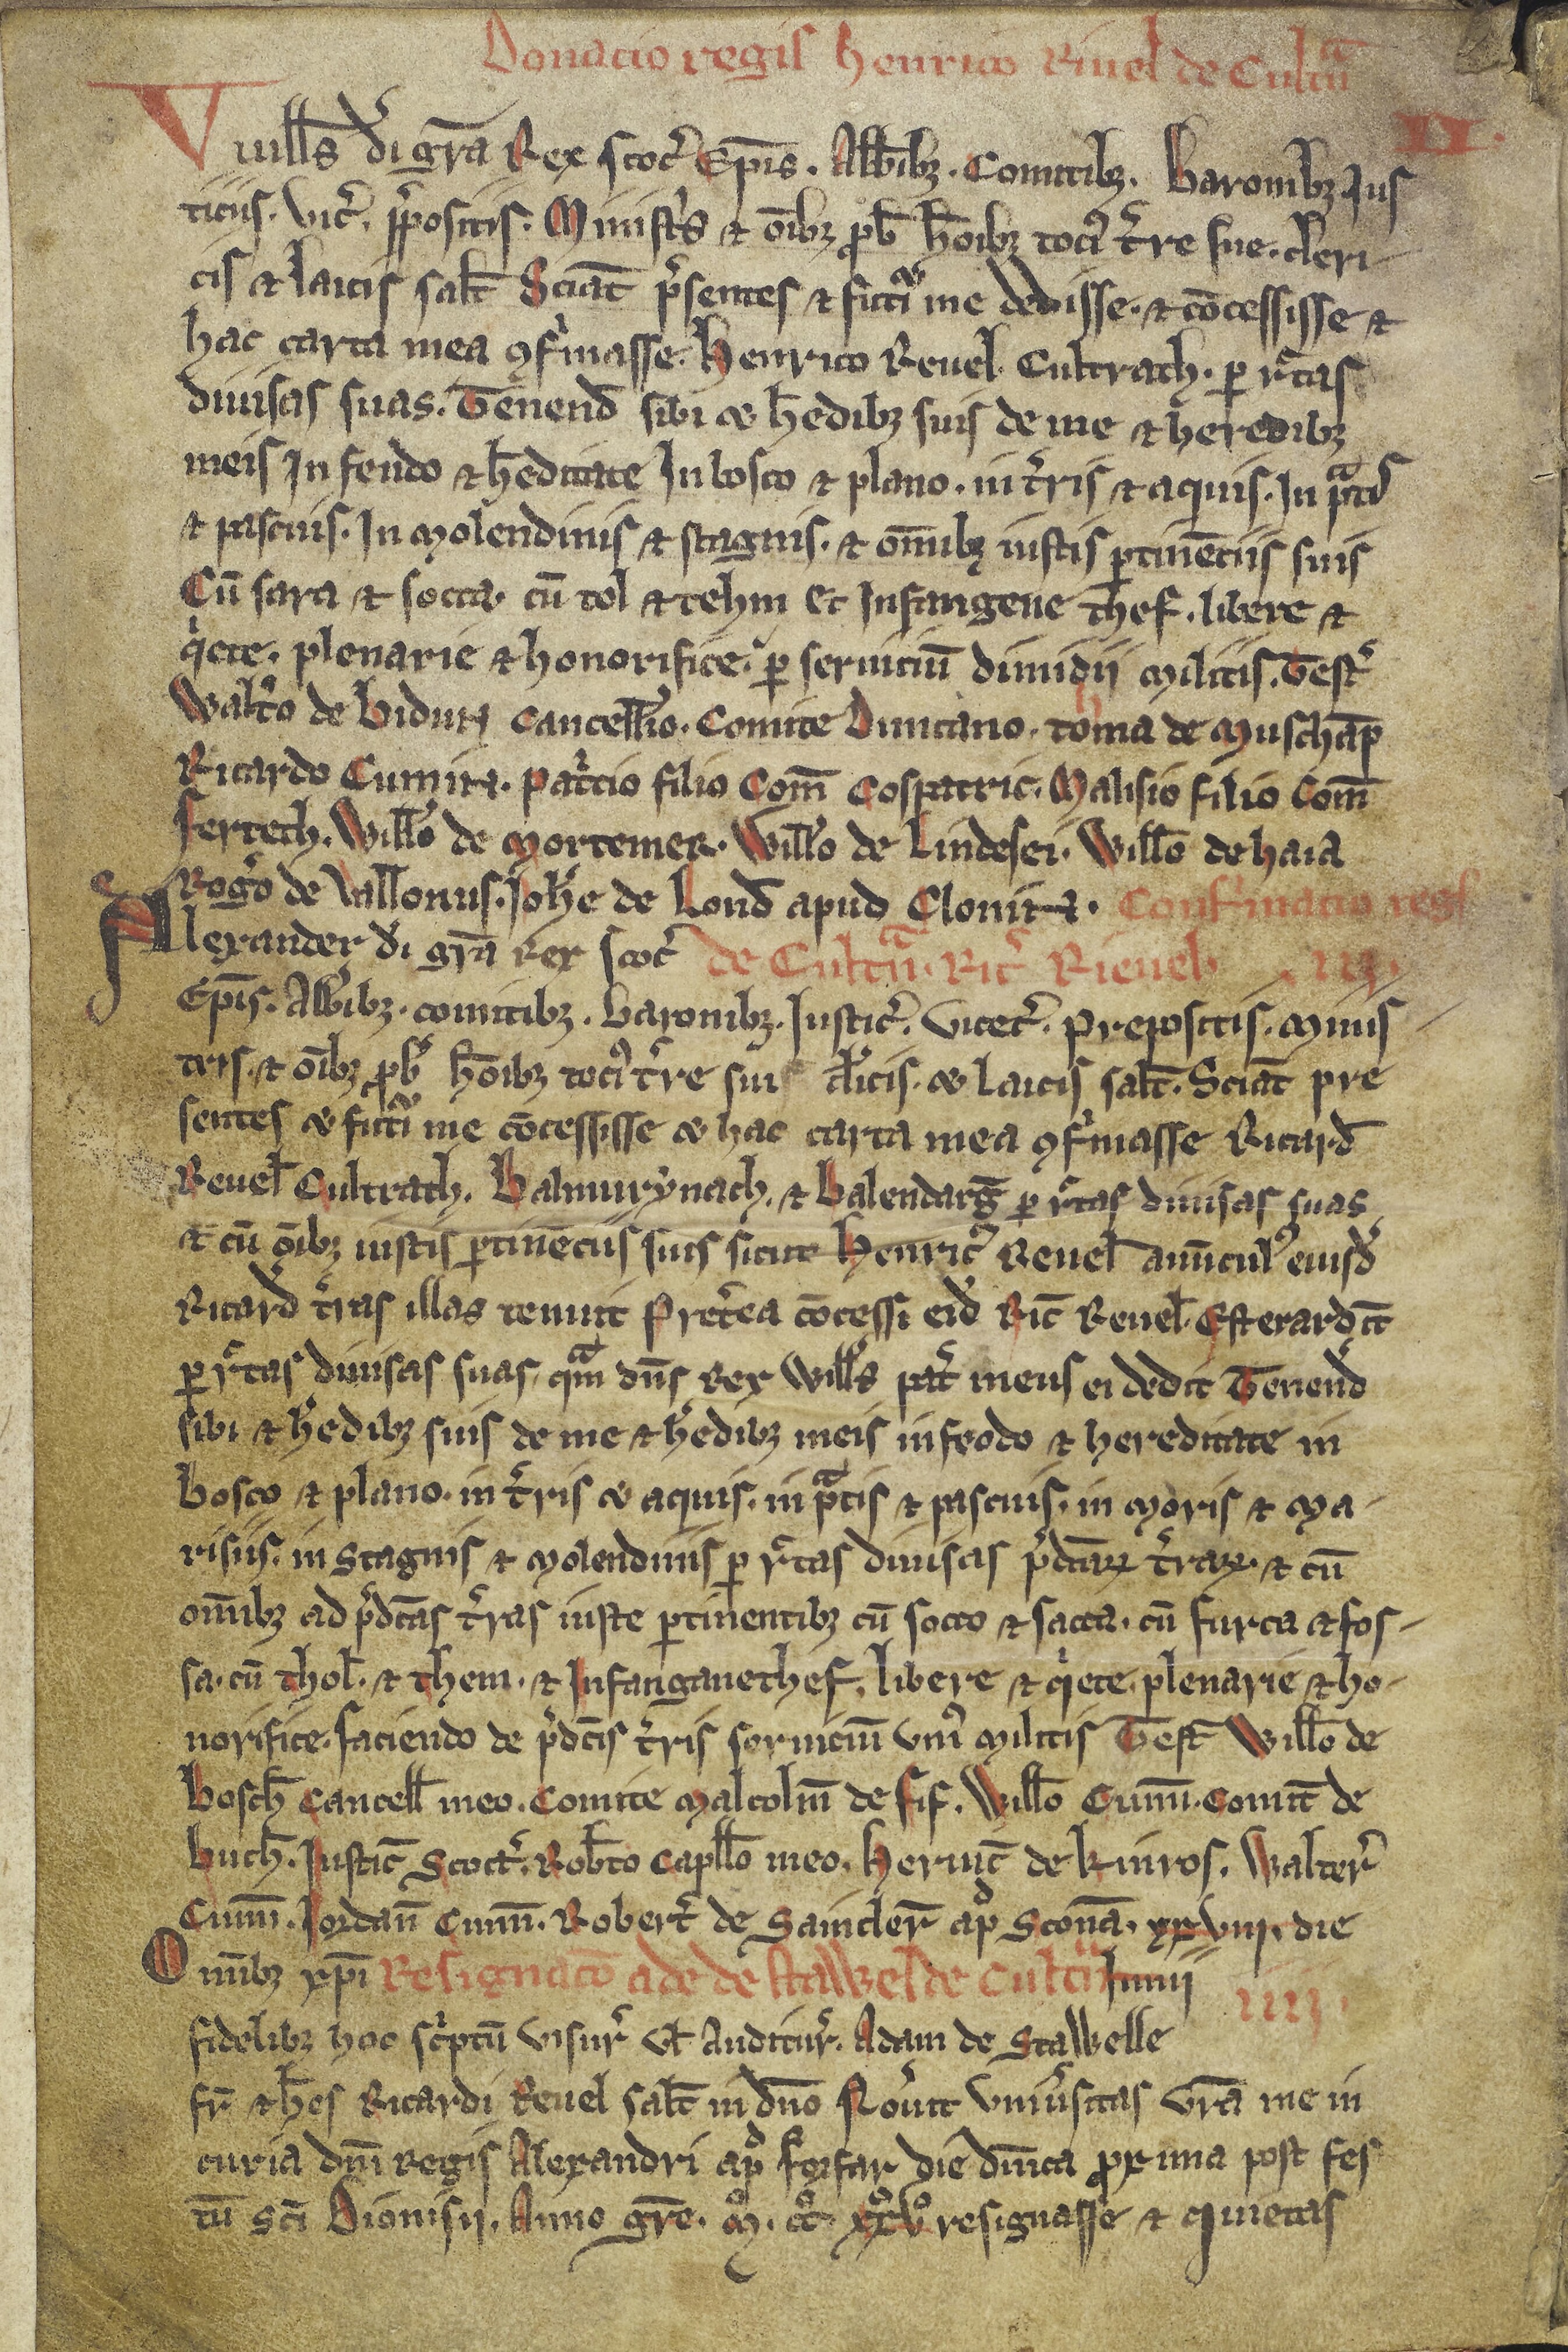 Donacio regis henrico Riuel de Cultᵃ
Vuillˢ di grā Rex scotꝰ Ep̄is. Abb̄ibꝫ. Comitibꝫ. Baronibꝫ Jus II.
ticiis. vic̄. p̄positis. Minist̄s ⁊ oīb̄ꝫ p̄b̄ hōibꝫ toci᷒ t̄re sue. cleri
cis ⁊ laicis salt̄ Sciāt p̄sentes ⁊ fut̄i me dedisse. ⁊ cōcessisse ⁊
hac carta mea ꝯf̄masse. Henrico Reuel Cultrach. ꝑ r̄ctas
diuisas suas. Tenend̄ sibi ⁊ h̄edibꝫ suis de me ⁊ heredibꝫ
meis In feudo ⁊ h̄editate In bosco ⁊ plano. in t̄ris ⁊ aquis. In p̄tis
⁊ pascuis. In Molendinis ⁊ stagnis. ⁊ om̄ibꝫ iustis ꝑtinēciis suis
Cū saca ⁊ socca. cū tol ⁊ tehm et Infangene thef. libere ⁊
q̄ete. plenarie ⁊ honorifice. ꝑ seruiciū dimidij Militis. Test̄
Walt̄o de bidun cancell̄io. Comite Duncano. toma de Muschāp
Ricardo Cumin. Pat̄cio filio Com̄ Cospatric. Malisio filio Com̄
fertech. Will̄o de Mortemer. Will̄o de Lindesei. Will̄o de haia
Roḡo de Vallonus. Joh̄e de Lond̄ apud Clonin. Confirmacio reḡ
Alexander di grā Rex scotꝰ de Cultᵃ. Ric̄ Rieuel. III.
Ep̄is. Abb̄ibꝫ. comitibꝫ. baronibꝫ. Justic̄. vicec̄. prepositis. Minis
tris. ⁊ oīb̄ꝫ p̄b̄ hōibꝫ toci᷒ t̄re sui cl̄icis. ⁊ laicis salt̄. Sciāt pre
sentes ⁊ fut̄i me cōcessisse ⁊ hac carta mea ꝯf̄masse Ricard̄
Reuel Cultrach. Balmurynach. ⁊ Balendarḡ ꝑ r̄ctas diuisas suas
⁊ cū oīb̄ꝫ iustis ꝑtinēciis suis sicut Henric᷒ Reuel auūcul᷒ eiusd̄
Ricard̄ t̄ras illas tenuit Pret̄ea cōcessi eid̄ Ric̄ Reuel. Esterardic̄t
ꝑ r̄ctas diuisas suas qᵃm dn̄s Rex Will̄s pat̄ meus ei dedit Tenend̄
sibi ⁊ h̄edibꝫ suis de me ⁊ h̄edibꝫ meis in feodo ⁊ hereditate in
bosco ⁊ plano. in t̄ris ⁊ aquis. in pᵃtis ⁊ pascuis. in Moris ⁊ Ma-
risiis. in stagnis ⁊ Molendinis ꝑ r̄ctas diuisas p̄dictaꝝ t̄raꝝ. ⁊ cū
om̄ibꝫ ad p̄dc̄as t̄ras iuste ꝑtinentibꝫ cū socco ⁊ sacca. cū furca ⁊ fos-
sa. cū thol. ⁊ them. ⁊ Infanganethef. libere ⁊ q̄ete. plenarie ⁊ ho-
norifice. faciendo de p̄dc̄is t̄ris seruiciū vni᷒ Militis Test̄ Will̄o de
Bosch̄ Cancell̄ meo. Comite Malcolm̄ de fif. Will̄o Cumin̄. Comit̄ de
buch̄. Justic̄ Scoct̄. Rob̄to Capll̄o meo. Heruic̄ de Kinros. Walter̄
Cumin̄. Jordan̄ Cumin̄. Robert̄ de Saincler̄ ap̄d Sconā. xxviii. die
Omībꝫ xp̄i Resignacō ade de stawel de Cultᵃ Junij IIII.
fidelibꝫ hoc sc̄ptū visur̄ vl̄ Auditur̄. Adam de Stawelle
fr̄ ⁊ h̄es Ricardi Reuel Salt̄ in dn̄o Nou̅it vniu̅sitas vr̄a me in
curia dn̄i regis Alexandri ap̄d forfar die dn̄ica ꝓxima post fes
tū Sc̄i Dionisij. Anno gr̄e. Mᵒ. ccᵒ. xxᵒvᵒ resignasse ⁊ quietas